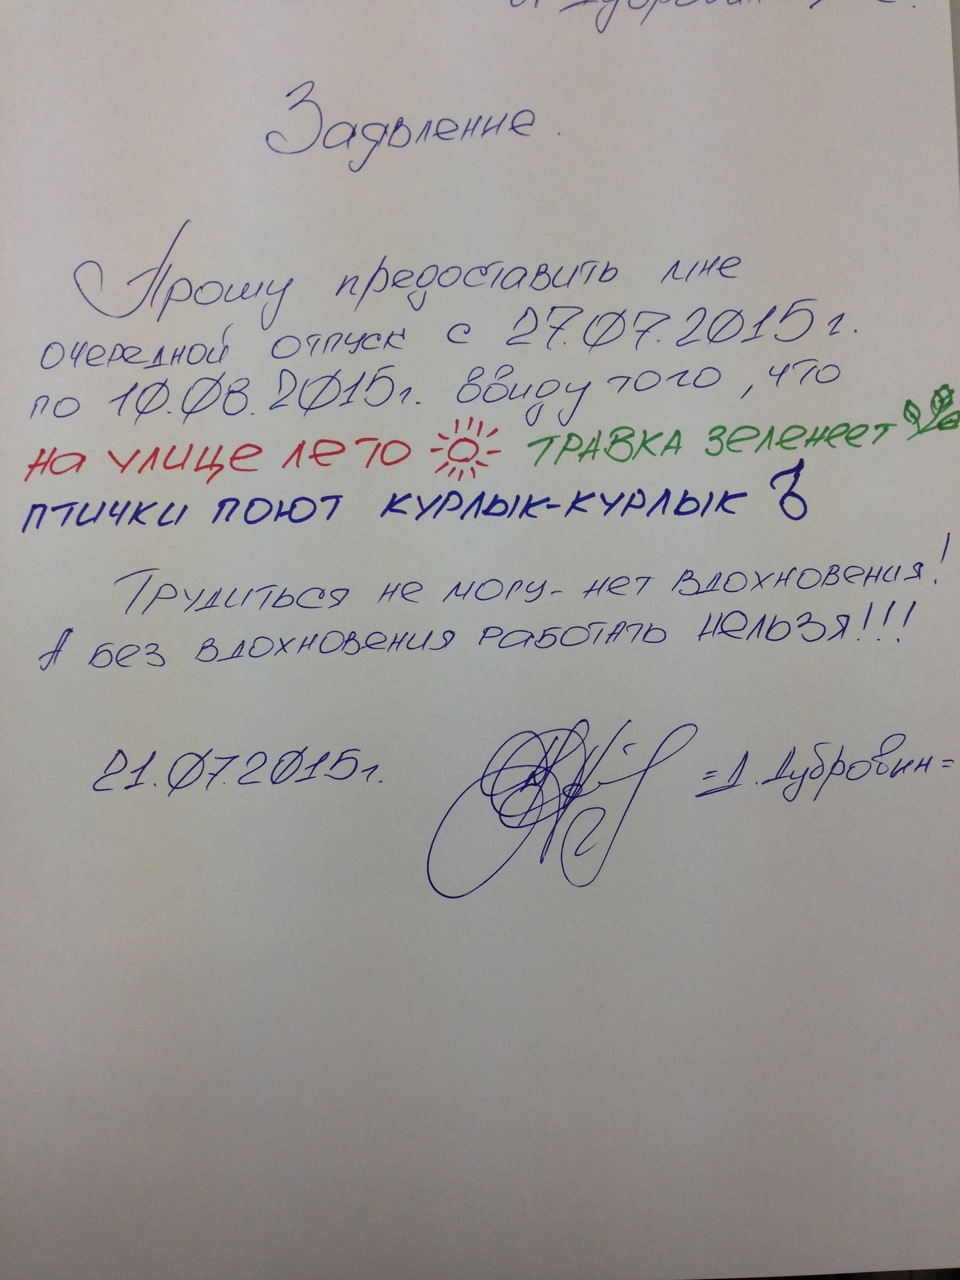 от Дубровин
Заявление.
Прошу предоставить мне
очередной отпуск с 27.07.2015г.
по 10.08.2015г. ввиду того, что
на улице лето травка зеленеет
птички поют курлык-курлык
Трудиться не могу- нет вдохновения!
А без вдохновения работать нельзя!!!
21.07.2015г. =Д.Дубровин=